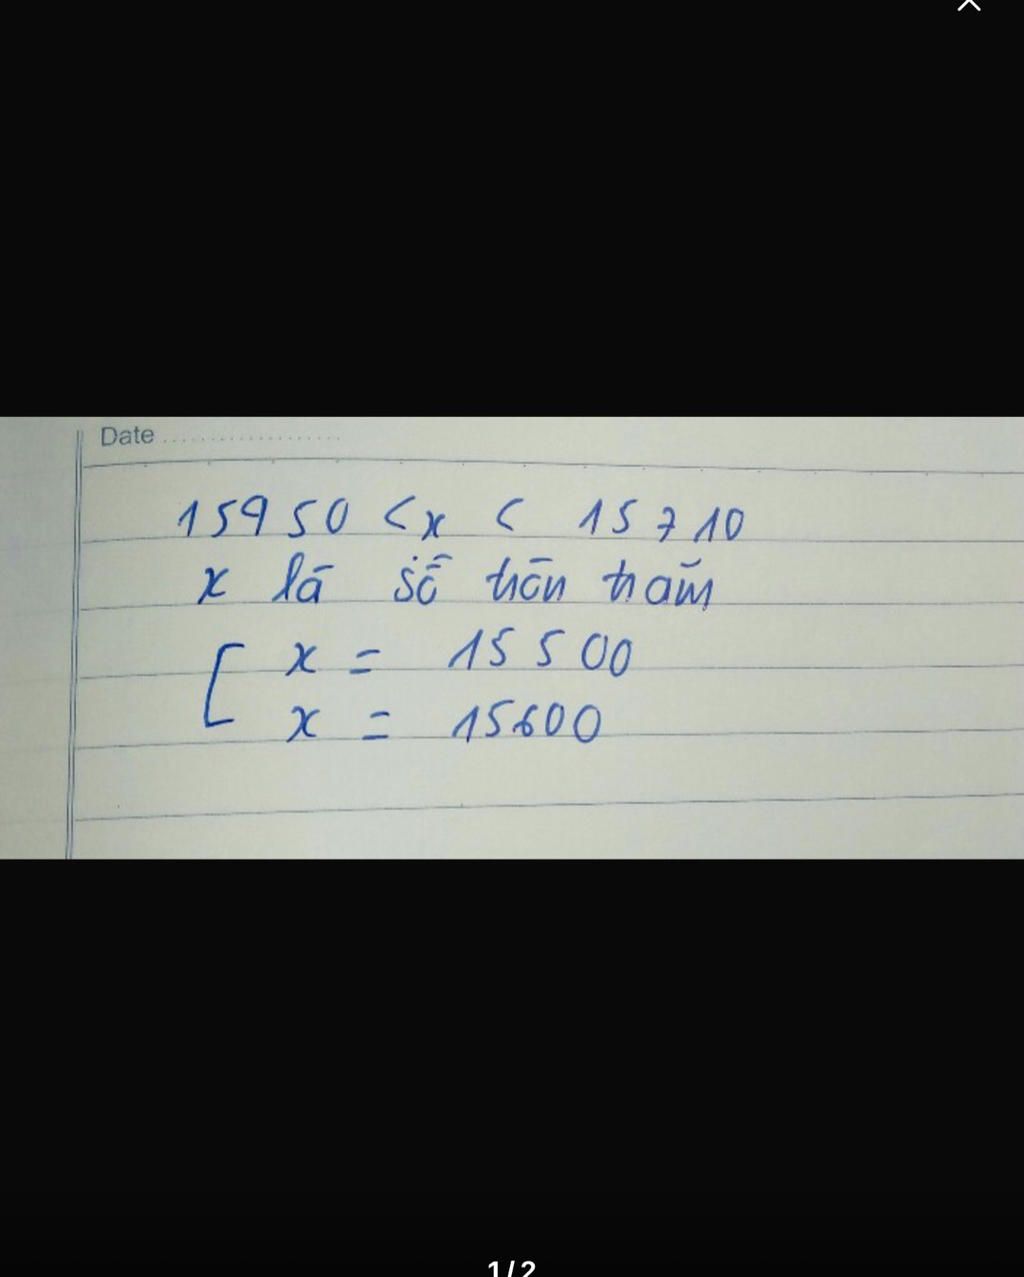 Date ....................
15950 < x < 15710
x là số tròn trăm
[ x = 15500
x = 15600
1/2